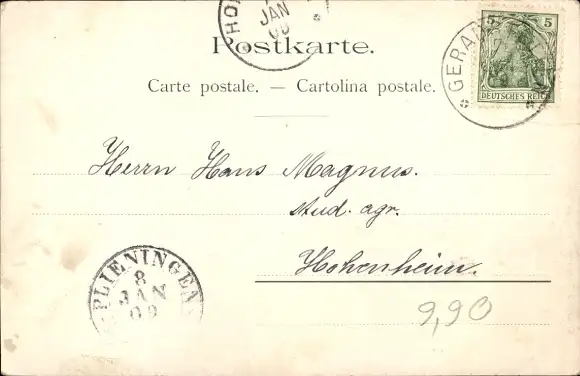 HO
JAN
09
Postkarte.
Carte postale. — Cartolina postale.
5 5
DEUTSCHES REICH
GERA
Herrn Hans Magnus.
stud. agr.
Hohenheim.
PLIENINGEN
8
JAN
09
9,90